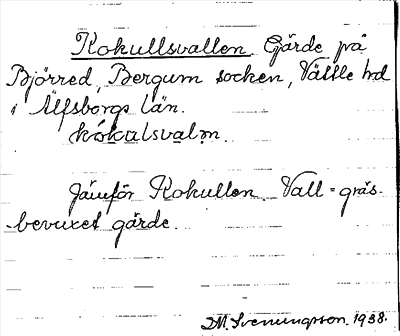 Kokullsvallen Gärde på
Björred, Bergum socken, Vättle hd
i Älfsborgs län.
kókulsvaln.
Jämför Kokullen. Vall = gräs-
-bevuxet gärde.
D.M. Svenungsson, 1938.